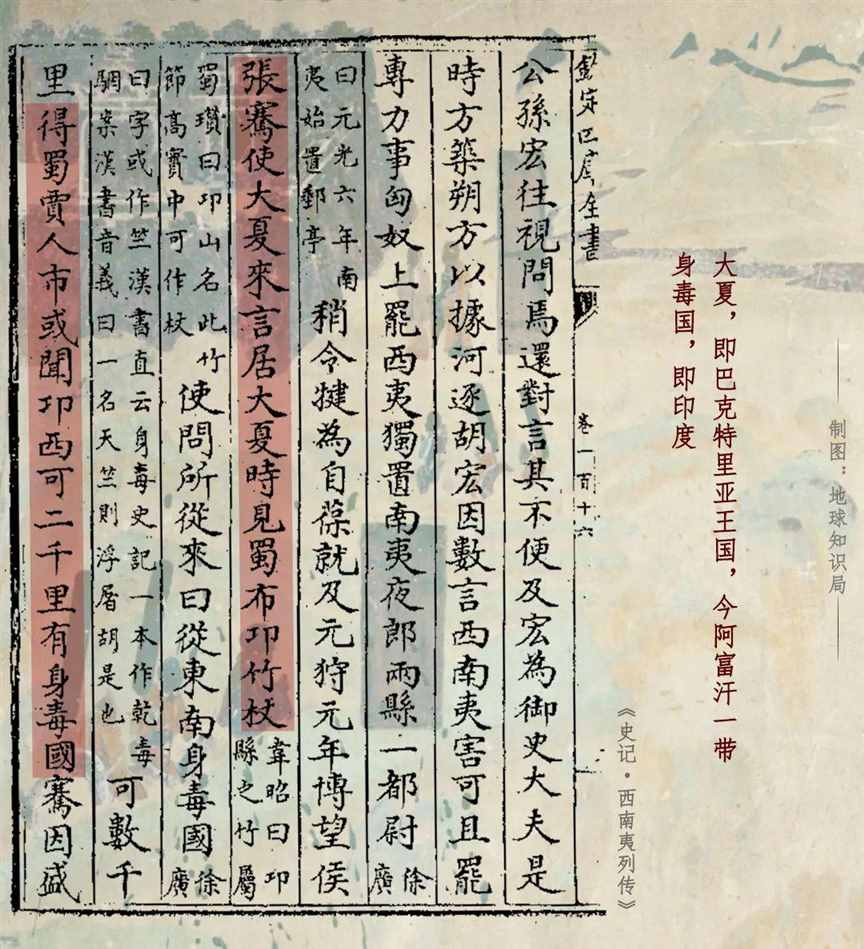 制图：地球知识局
大夏，即巴克特里亚王国，今阿富汗一带
身毒国，即印度
《史记·西南夷列传》
欽定四庫全書
卷一百十六
公孫宏往視問焉還對言其不便及宏為御史大夫是
時方築朔方以據河逐胡宏因數言西南夷害可且罷
專力事匈奴上罷西夷獨置南夷夜郎兩縣一都尉徐廣
曰元光六年南夷始置郵亭稍令犍為自葆就及元狩元年博望侯
張騫使大夏來言居大夏時見蜀布卭竹杖韋昭曰卭縣之竹屬
蜀瓚曰卭山名此竹節高實中可作杖使問所從來曰從東南身毒國徐廣
曰字或作竺漢書直云身毒史記一本作乾毒駰案漢書音義曰一名天竺則浮屠胡是也可數千
里得蜀賈人市或聞卭西可二千里有身毒國騫因盛